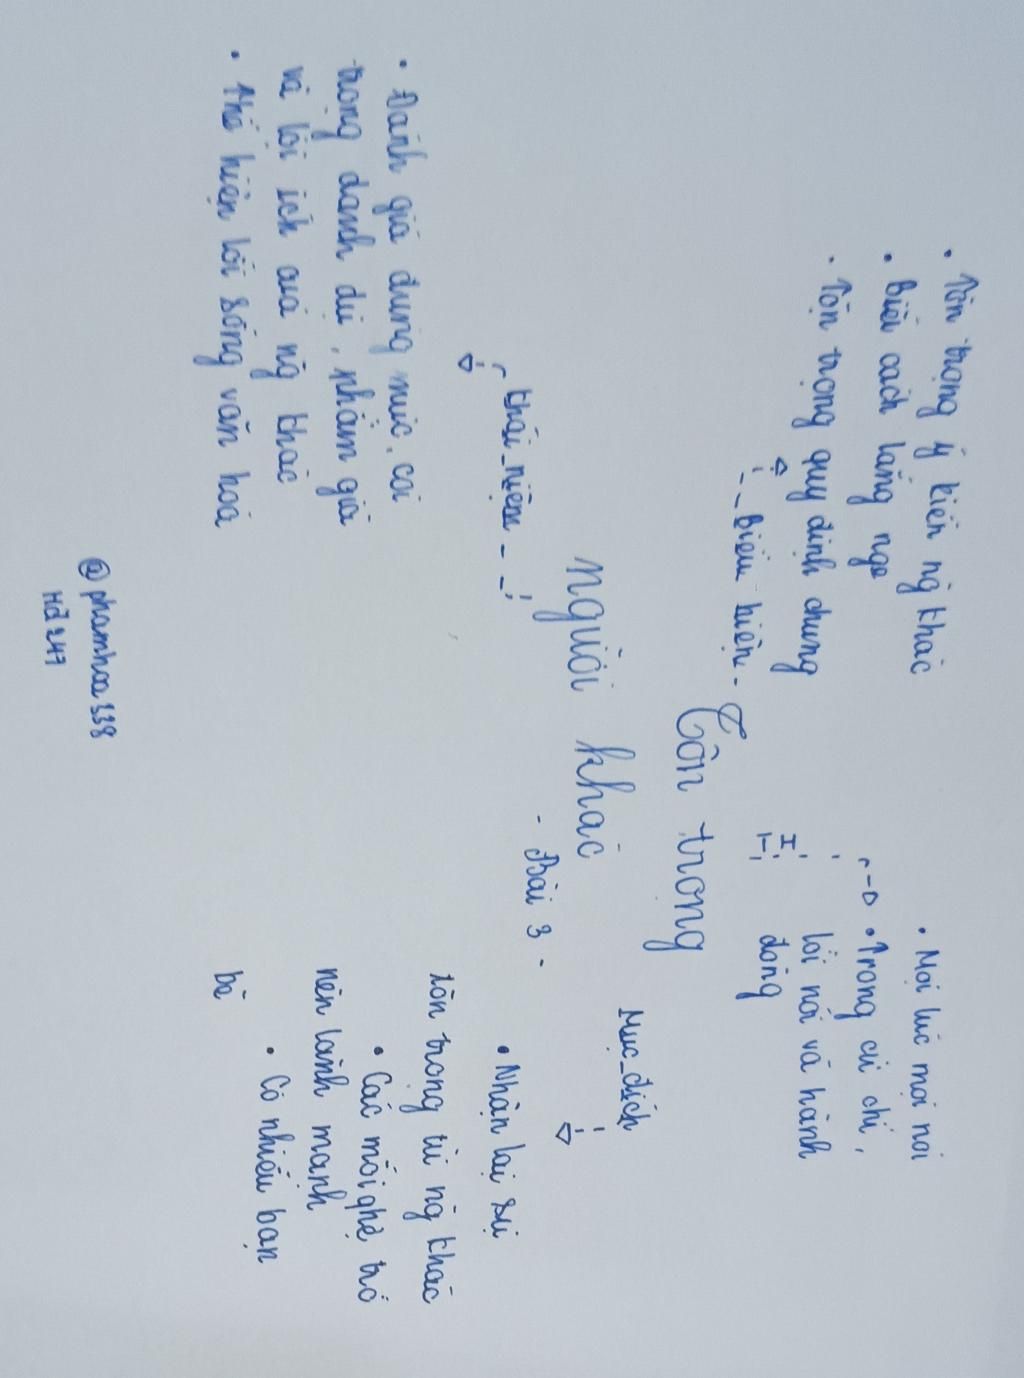 • Tôn trọng ý kiến ng khác
• Biết cách lắng nge
• Tôn trọng quy định chung
Biểu hiện
• Mọi lúc mọi nơi
• Trong cử chỉ,
lời nói và hành
động
Tôn trọng
người khác
- Bài 3 -
Khái niệm
• Đánh giá đúng mức, coi
trọng danh dự, phẩm giá
và lợi ích của ng khác
• Thể hiện lối sống văn hoá
Mục đích
• Nhận lại sự
tôn trọng từ ng khác
• Các mối qhệ trở
nên lành mạnh
• Có nhiều bạn
bè
@phamhoa338
Hđ247